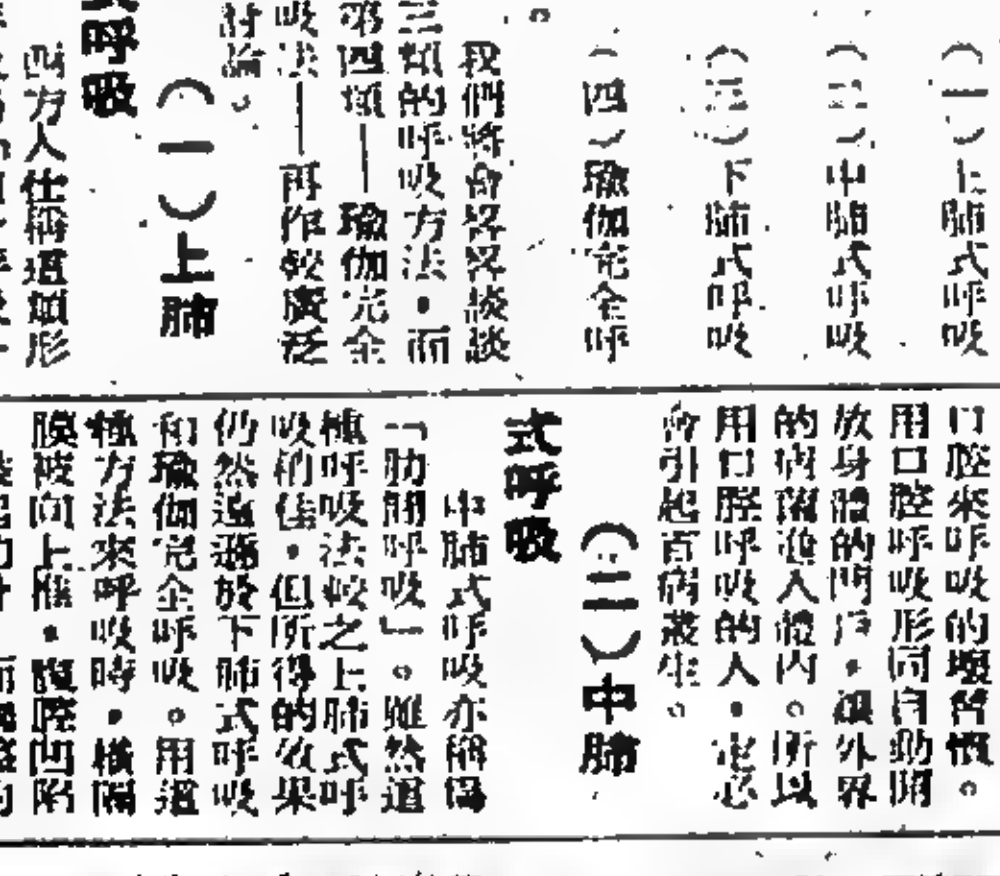 （一）上肺式呼吸
（二）中肺式呼吸
（三）下肺式呼吸
（四）瑜伽完全呼
。
我們將會畧畧談談
三類的呼吸方法，而
第四類——瑜伽完全
吸法——再作較廣泛
討論。
（一）上肺
式呼吸
西方人仕稱這類形
口腔來呼吸的壞習慣。
用口腔呼吸形同自動開
放身體的門戶，讓外界
的病菌進入體內。所以
用口腔呼吸的人，定必
會引起百病叢生。
（二）中肺
式呼吸
中肺式呼吸亦稱為
「肋間呼吸」。雖然這
種呼吸法較之上肺式呼
吸稍佳，但所得的效果
仍然遠遜於下肺式呼吸
和瑜伽完全呼吸。用這
種方法來呼吸時，橫隔
膜被向上推，腹腔凹陷